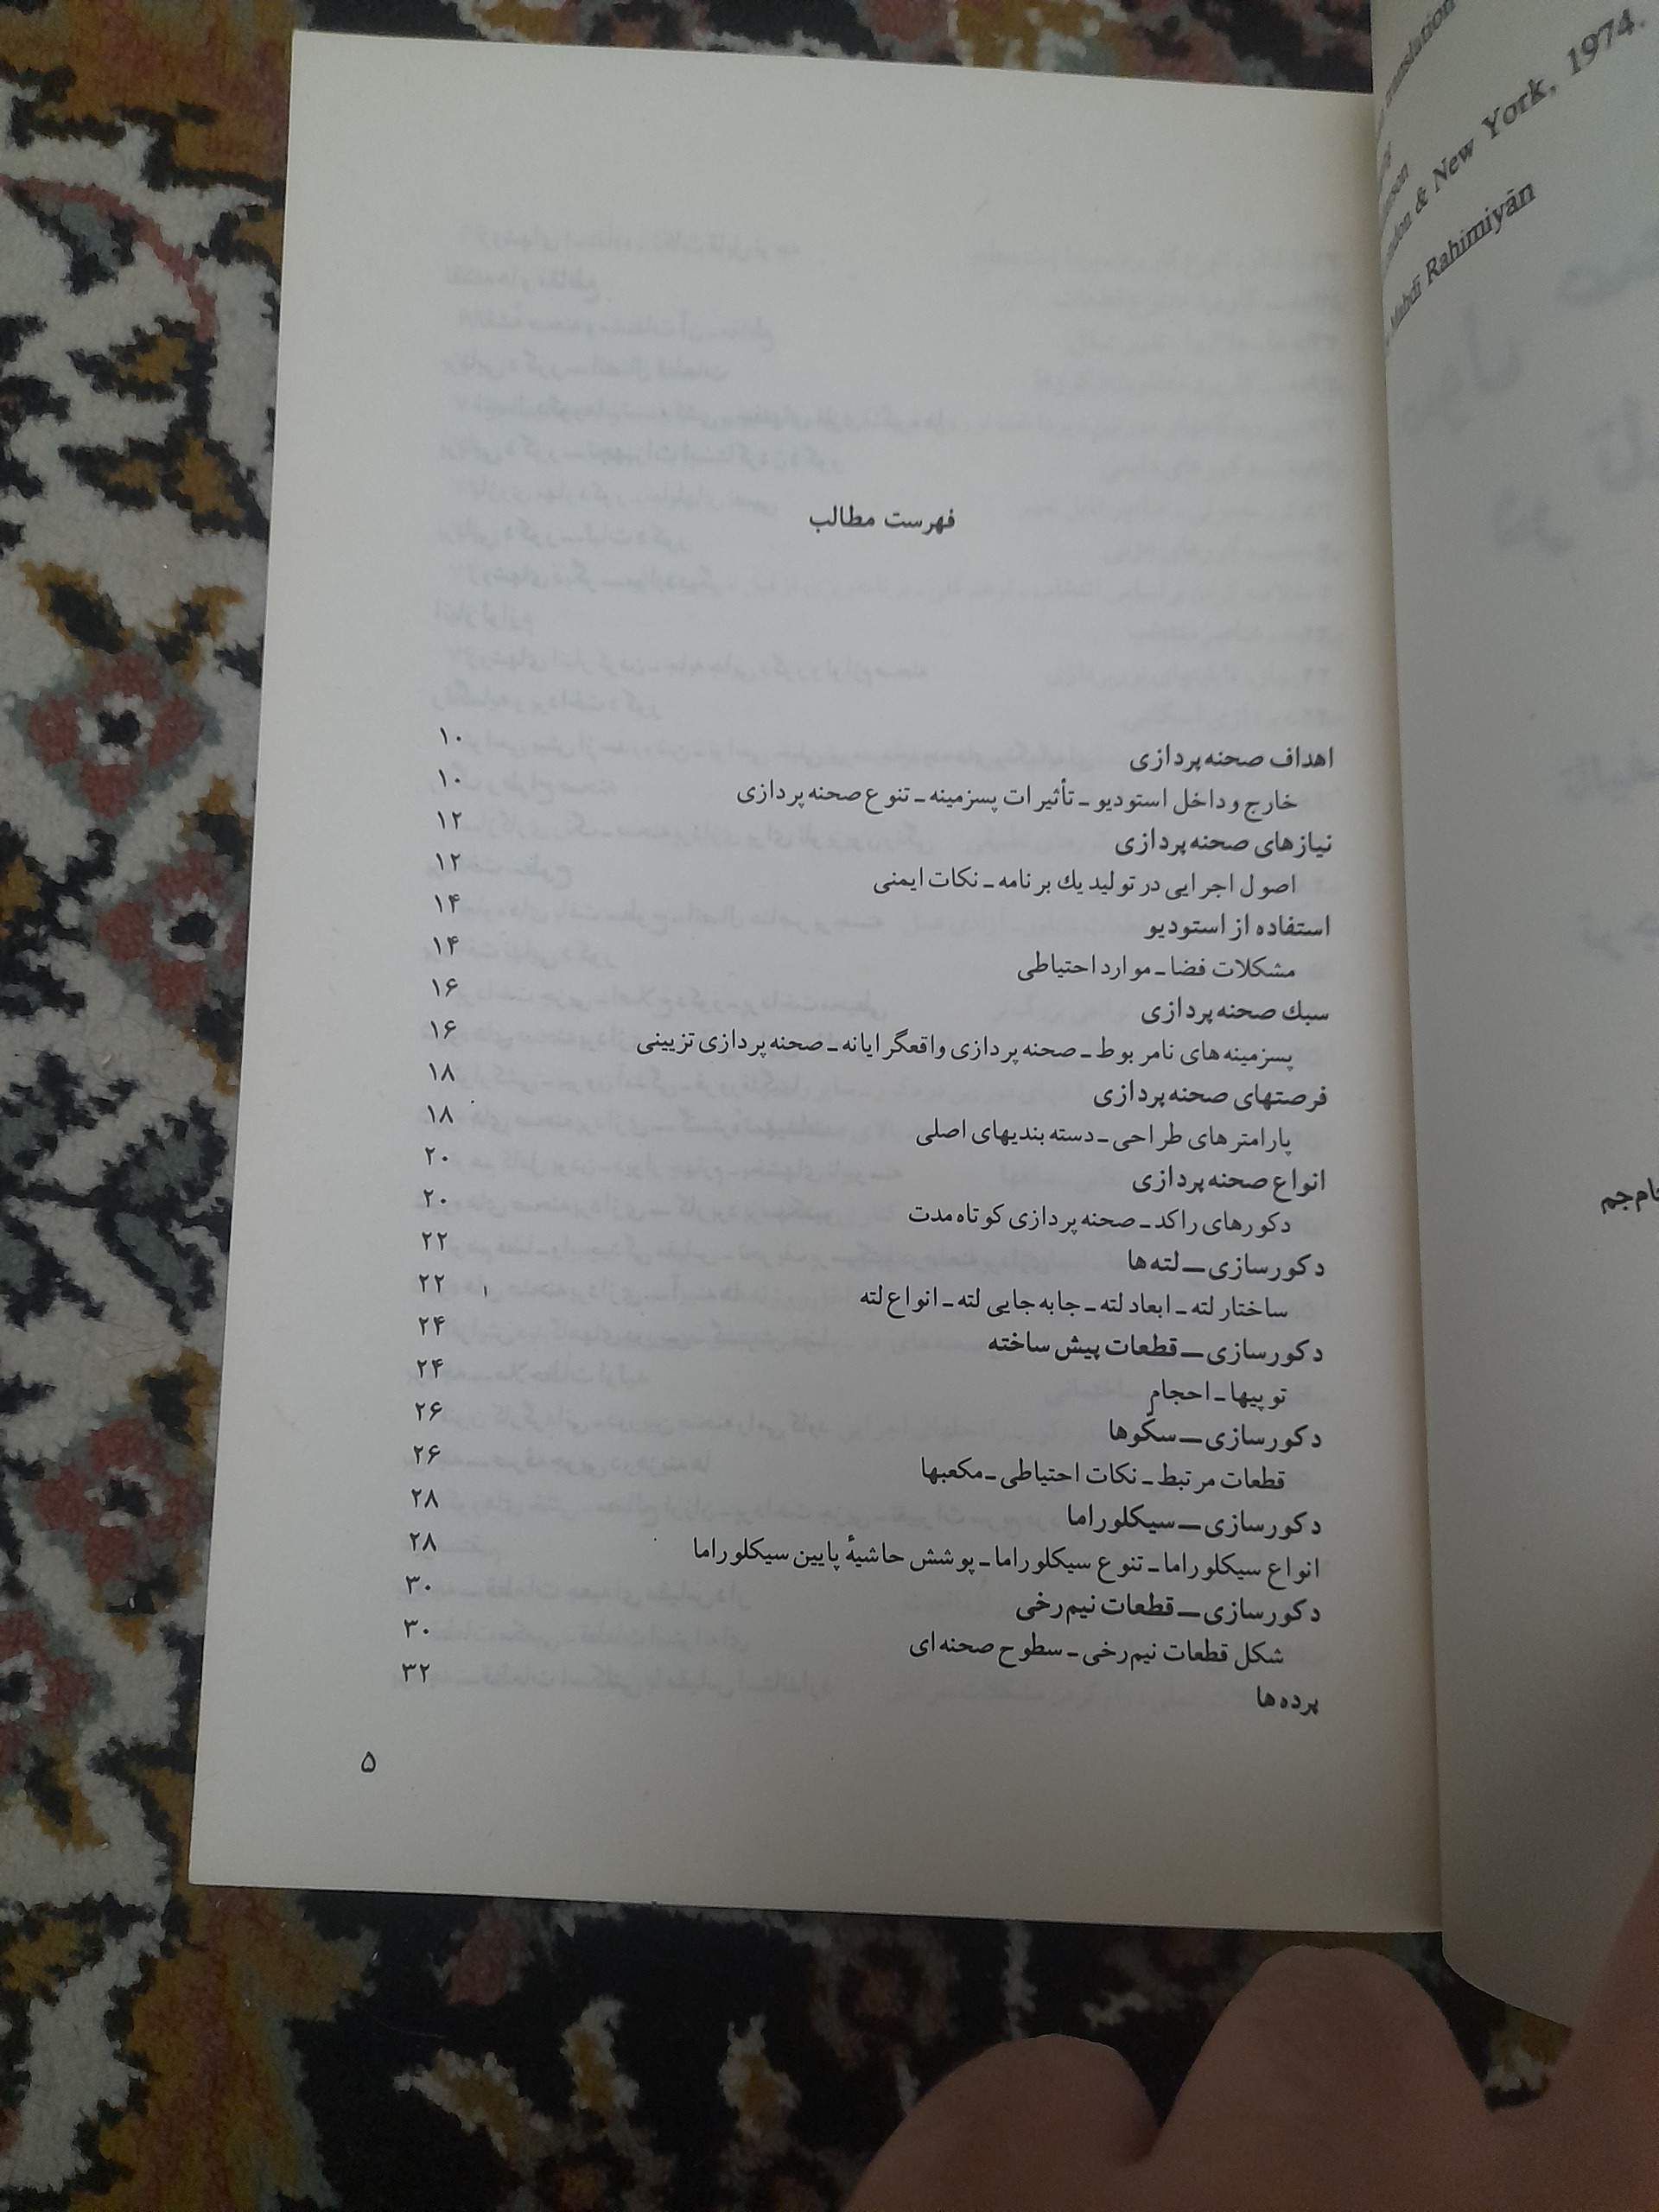 فهرست مطالب
اهداف صحنه‌پردازی ۱۰
خارج و داخل استودیو ـ تأثیرات پسزمینه ـ تنوع صحنه‌پردازی ۱۰
نیازهای صحنه‌پردازی ۱۲
اصول اجرایی در تولید یك برنامه ـ نکات ایمنی ۱۲
استفاده از استودیو ۱۴
مشکلات فضا ـ موارد احتیاطی ۱۴
سبك صحنه‌پردازی ۱۶
پسزمینه‌های نامربوط ـ صحنه‌پردازی واقعگرایانه ـ صحنه‌پردازی تزیینی ۱۶
فرصتهای صحنه‌پردازی ۱۸
پارامترهای طراحی ـ دسته‌بندیهای اصلی ۱۸
انواع صحنه‌پردازی ۲۰
دکورهای راکد ـ صحنه‌پردازی کوتاه‌مدت ۲۰
دکورسازی — لته‌ها ۲۲
ساختار لته ـ ابعاد لته ـ جابه‌جایی لته ـ انواع لته ۲۲
دکورسازی — قطعات پیش ساخته ۲۴
توپیها ـ احجام ۲۴
دکورسازی — سکّوها ۲۶
قطعات مرتبط ـ نکات احتیاطی ـ مکعبها ۲۶
دکورسازی — سیکلوراما ۲۸
انواع سیکلوراما ـ تنوع سیکلوراما ـ پوشش حاشیۀ پایین سیکلوراما ۲۸
دکورسازی — قطعات نیم‌رخی ۳۰
شکل قطعات نیم‌رخی ـ سطوح صحنه‌ای ۳۰
پرده‌ها ۳۲
۵
translation
& New York, 1974.
Mahdī Rahīmiyān